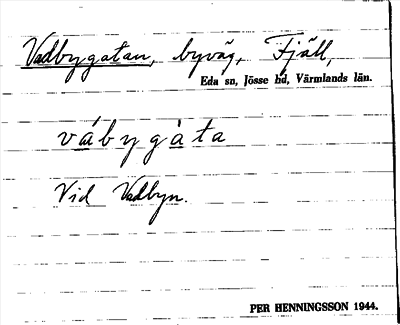 Vadbygatan, byväg, Fjäll,
Eda sn, Jösse hd, Värmlands län.
vábygàta
Vid Vadbyn.
PER HENNINGSSON 1944.